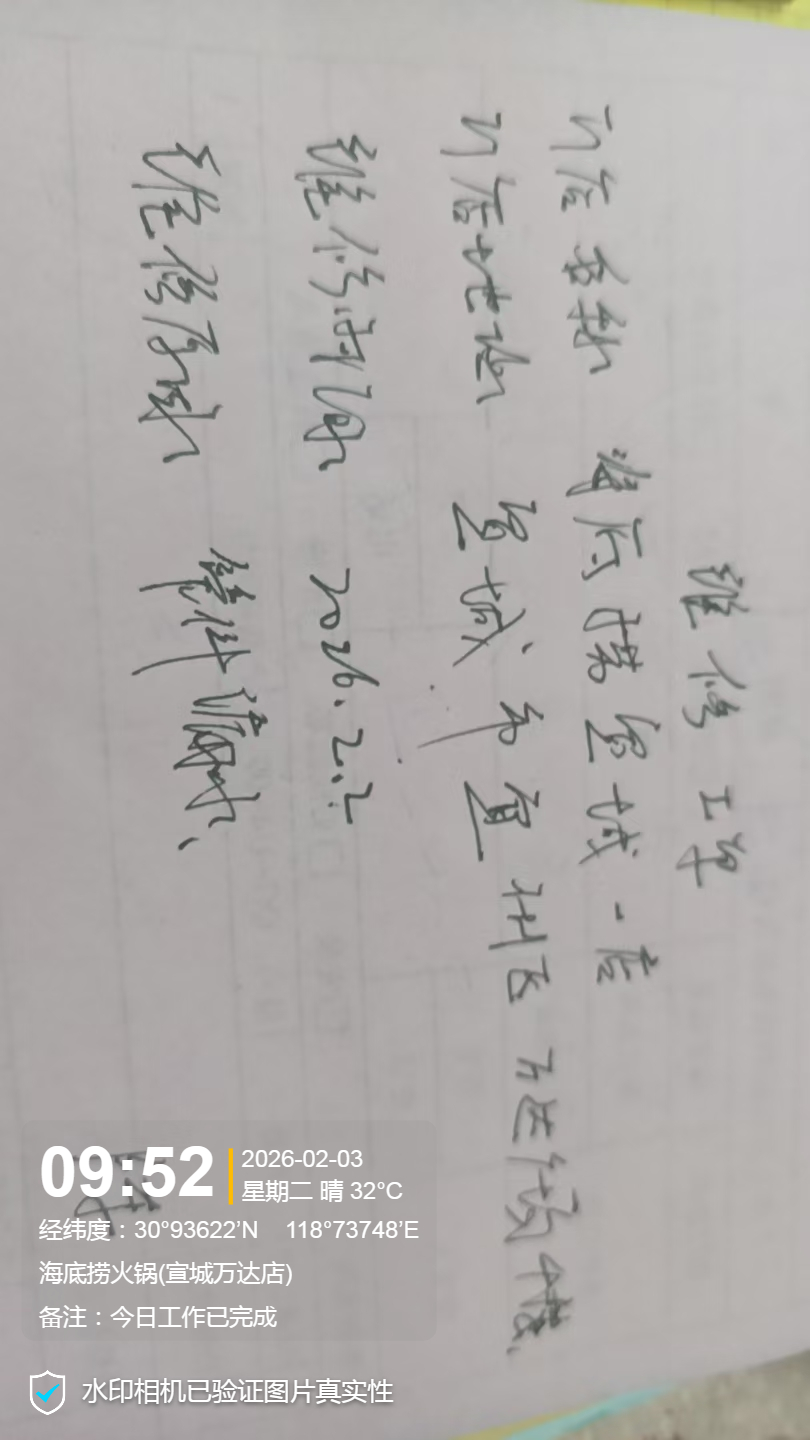 维修工单
门店名称 海底捞宣城一店
门店地址 宣城市宣州区万达广场4楼
维修时间 2026.2.2
维修原因 管件漏水
09:52
2026-02-03
星期二 晴 32°C
经纬度：30°93622’N 118°73748’E
海底捞火锅(宣城万达店)
备注：今日工作已完成
水印相机已验证图片真实性